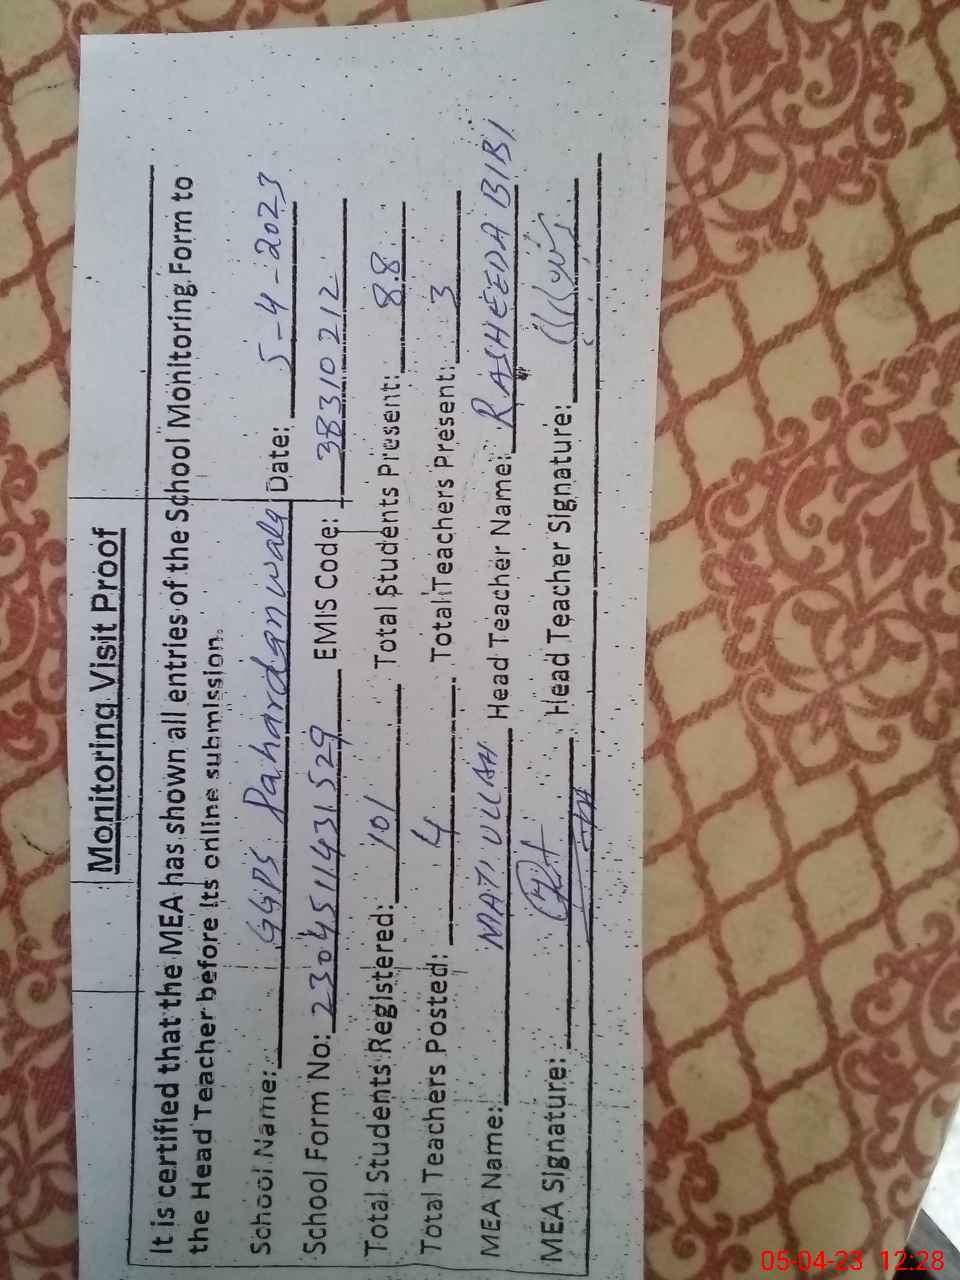 Monitoring Visit Proof
It is certified that the MEA has shown all entries of the School Monitoring Form to
the Head Teacher before its online submission.
School Name: GGPS Pahardanwala Date: 5-4-2023
School Form No: 2304511431529 EMIS Code: 38310212
Total Students Registered: 101 Total Students Present: 88
Total Teachers Posted: 4 Total Teachers Present: 3
MEA Name: MATI ULLAH Head Teacher Name: RASHEEDA BIBI
MEA Signature: Head Teacher Signature:
05-04-23 12:28